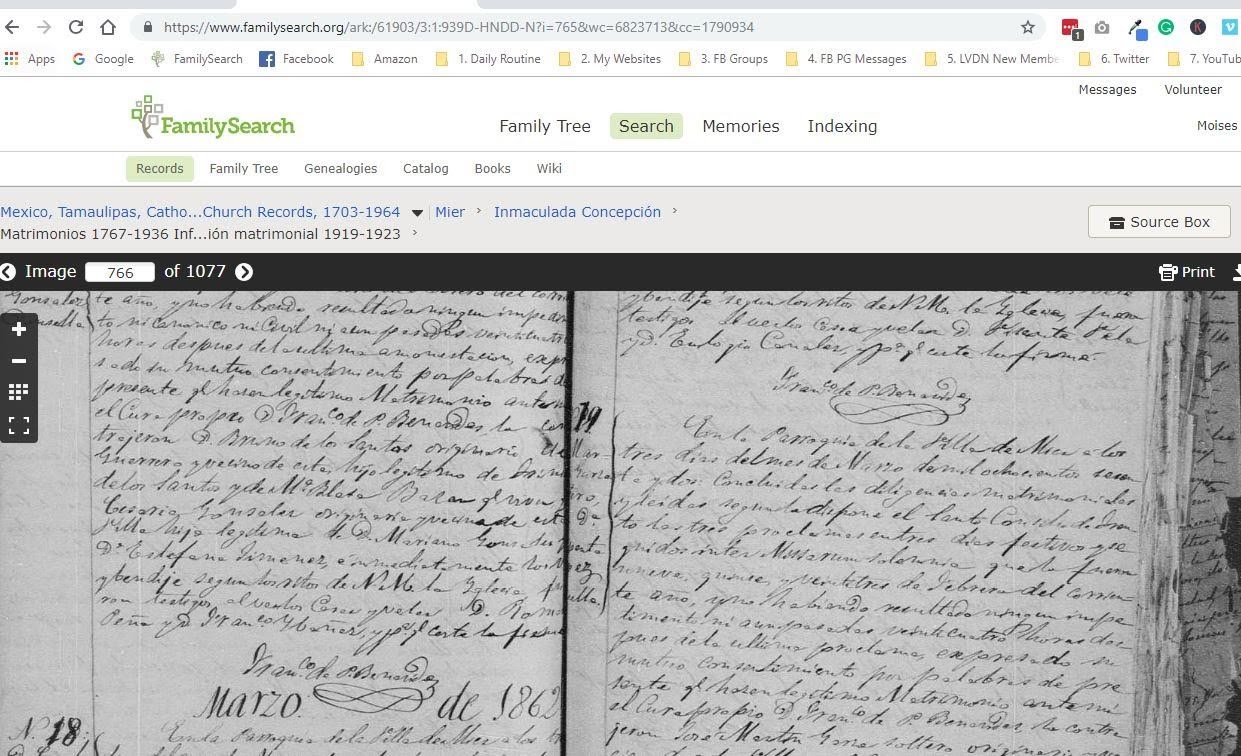 https://www.familysearch.org/ark:/61903/3:1:939D-HNDD-N?i=765&wc=6823713&cc=1790934
1 K
Apps Google FamilySearch Facebook Amazon 1. Daily Routine 2. My Websites 3. FB Groups 4. FB PG Messages 5. LVDN New Membe 6. Twitter 7. YouTub
Messages Volunteer
FamilySearch Family Tree Search Memories Indexing Moises
Records Family Tree Genealogies Catalog Books Wiki
Mexico, Tamaulipas, Catho...Church Records, 1703-1964 Mier Inmaculada Concepción
Matrimonios 1767-1936 Inf...ión matrimonial 1919-1923
Source Box
Image 766 of 1077 Print
Gonzalez te año, y no habiendo resultado ningun impedi
to ni canonico ni Civil ni aun pasadas veinticuatro
horas despues de la ultima amonestacion, expre
sado su mutuo consentimiento por palabras de
presente qe. hasen legitimo Matrimonio ante mi
el Cura propio D. Franco. de P. Benavides la con
trajeron D. Bruno de los Santos originario de
Guerrero y vecino de esta, hijo legitimo de
de los Santos y de Ma. Blasa Bazan
Cesaria Gonzalez originaria y vecina de esta
Villa hija legitima de D. Mariano Gonzalez
Da. Estefana Jimenez, é inmediatamente los
y bendije segun los ritos de N. M. la Yglesia
ron testigos al verlos Casar y velar D.
Peña y D. Franco. Ybañez, y pa. qe. conste lo firmé
Franco. de P. Benavides
Marzo de 1862
N. 18
En la Parroquia de la Villa de Mier a los tres
y bendije segun los ritos de N. M. la Yglesia, fueron
testigos al verlos Casar y velar D. Vicente Vela
y D. Eulogio Canales, y pa. qe. conste lo firmé.
Franco. de P. Benavides
19
En la Parroquia de la Villa de Mier a los
tres dias del mes de Marzo de mil ochocientos sesen
ta y dos: Concluidas las diligencias matrimoniales
y leidas segun lo dispone el Santo Concilio de Tren
to las tres proclamas en tres dias festivos que
quidos inter Missarum solemnia que lo fueron
nueve, quince, y veintitres de Febrero del corrien
te año, y no habiendo resultado ningun impe
dimento ni aun pasadas veinticuatro horas des
pues de la ultima proclama, expresado su
mutuo consentimiento por palabras de pre
sente qe. hasen legitimo Matrimonio ante mi
el Cura propio D. Franco. de P. Benavides, la contra
jeron José Martin soltero originario